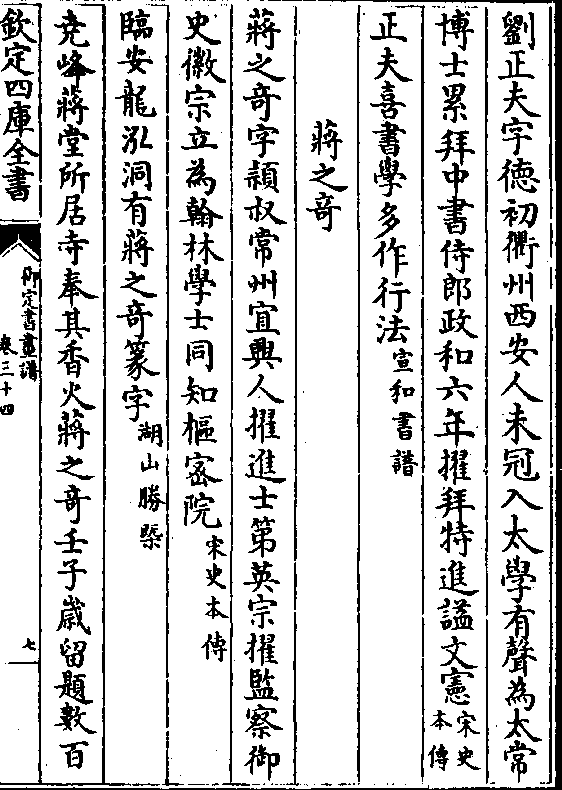 劉正夫字德初衢州西安人未冠入太學有聲為太常
博士累拜中書侍郎政和六年擢拜特進謚文憲宋史本傳
正夫喜書學多作行法宣和書譜
蔣之奇
蔣之奇字頴叔常州宜興人擢進士第英宗擢監察御
史徽宗立為翰林學士同知樞宻院宋史本傳
臨安龍泓洞有蔣之奇篆字湖山勝槩
尭峰蔣堂所居寺奉其香火蔣之奇壬子嵗留題數百
欽定四庫全書
御定書畫譜
卷三十四
七